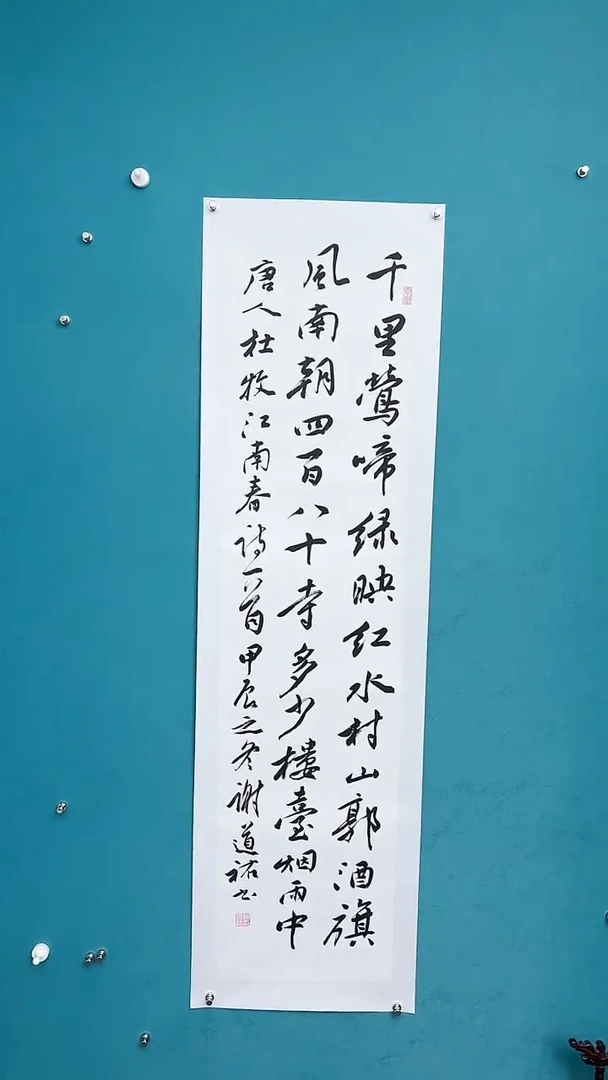 千里鶯啼绿映红水村山郭酒旗
风南朝四百八十寺多少楼臺烟雨中
唐人杜牧江南春诗一首甲辰之冬谢道祐书